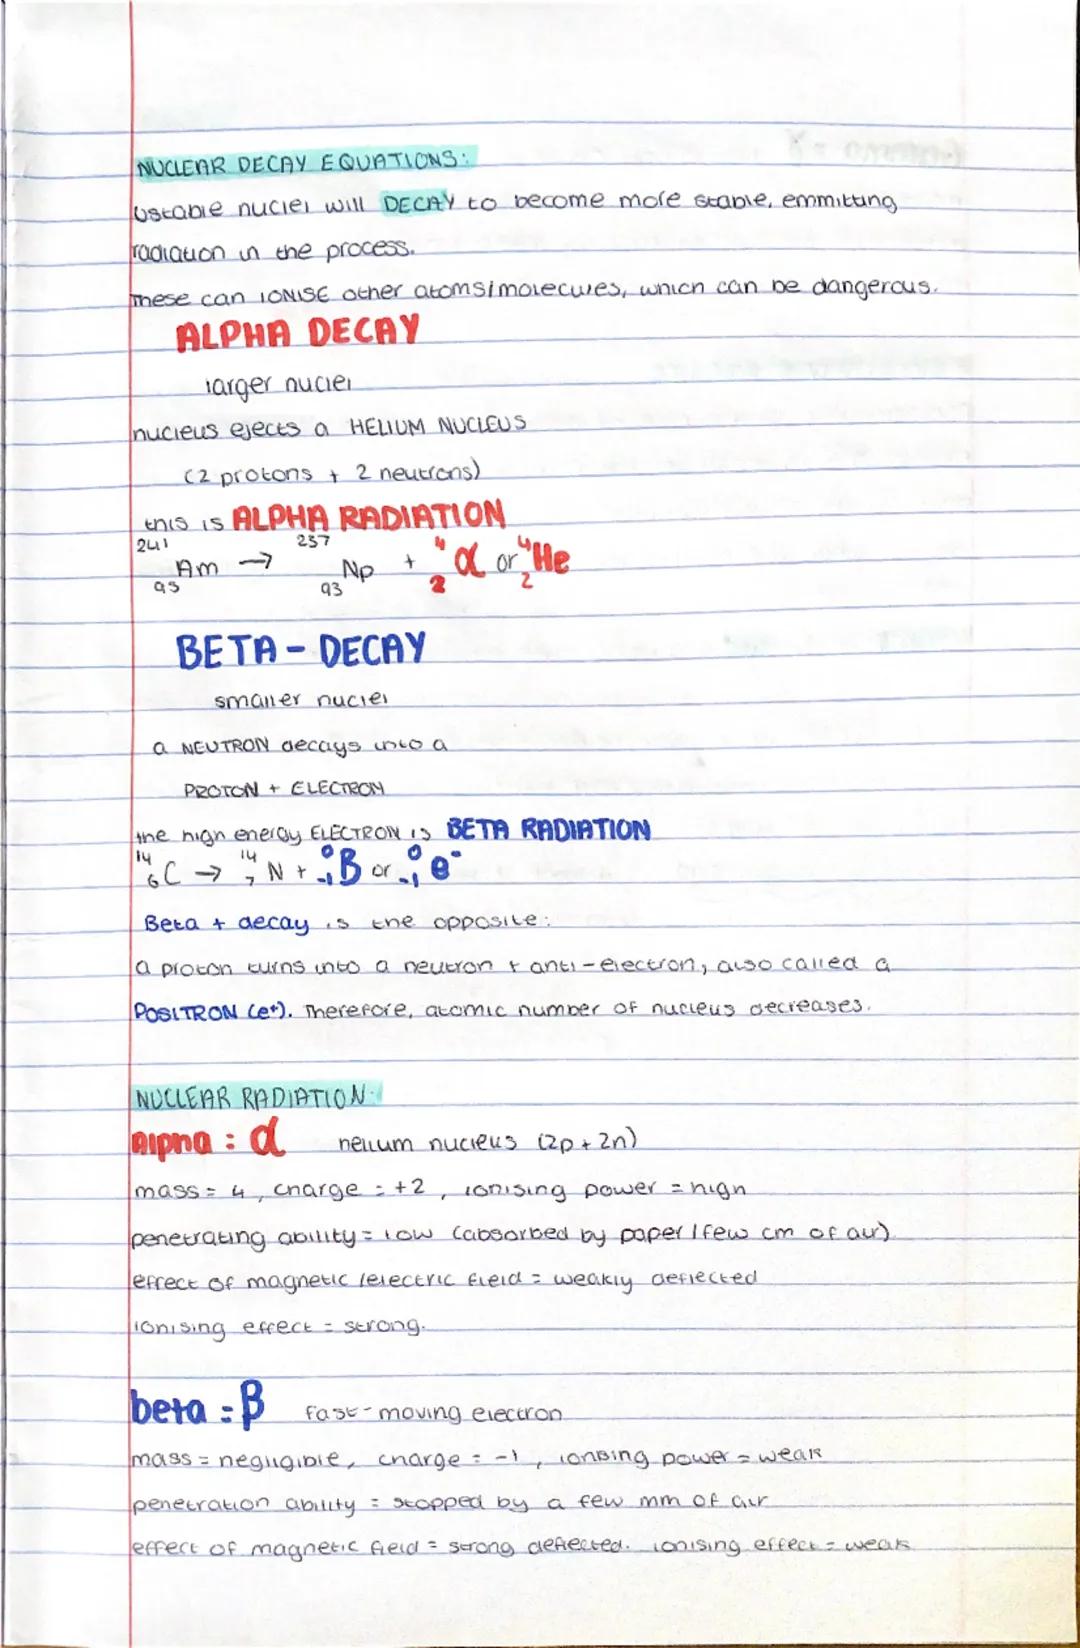 NUCLEAR DECAY EQUATIONS:
Ustable nuclei will DECAY to become more stable, emmitting
radiation in the process.
These can IONISE other atoms/molecules, which can be dangerous.
ALPHA DECAY
larger nuclei
nucleus ejects a HELIUM NUCLEUS
(2 protons + 2 neutrons)
this is ALPHA RADIATION
²⁴¹₉₅Am → ²³⁷₉₃Np + ⁴₂α or ⁴₂He
BETA - DECAY
smaller nuclei
a NEUTRON decays into a
PROTON + ELECTRON
the high energy ELECTRON is BETA RADIATION
¹⁴₆C → ¹⁴₇N + ⁰₋₁B or ⁰₋₁e⁻
Beta + decay is the opposite:
a proton turns into a neutron + anti-electron, also called a
POSITRON (e⁺). Therefore, atomic number of nucleus decreases.
NUCLEAR RADIATION:
Alpha : α helium nucleus (2p + 2n)
mass = 4, charge = +2, ionising power = high
penetrating ability = low (absorbed by paper / few cm of air)
effect of magnetic /electric field = weakly deflected
ionising effect = strong.
beta = β fast-moving electron
mass = negligible, charge = -1, ionsing power = weak
penetration ability = stopped by a few mm of air
effect of magnetic field = strong deflected. ionising effect = weak